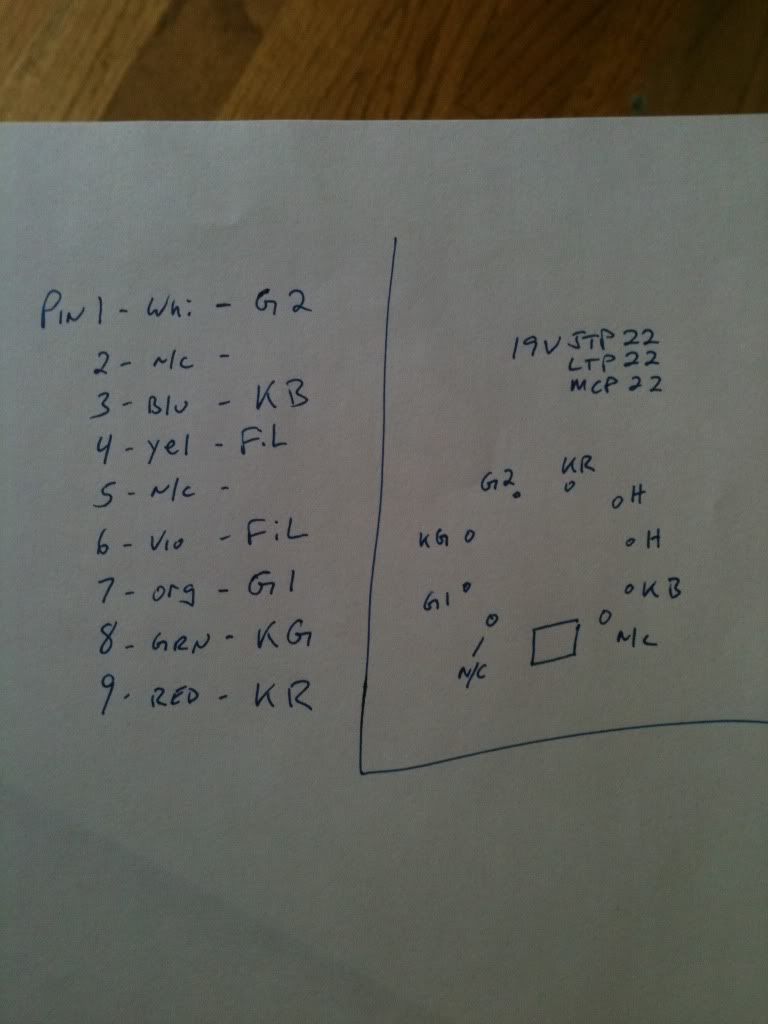 PIN 1 - Whi - G2
2 - N/C -
3 - Blu - KB
4 - yel - FiL
5 - N/C -
6 - Vio - FiL
7 - org - G1
8 - GRN - KG
9 - RED - KR
19V JTP 22
LTP 22
MCP 22
G2
KR
H
KG
H
G1
KB
N/C
N/C